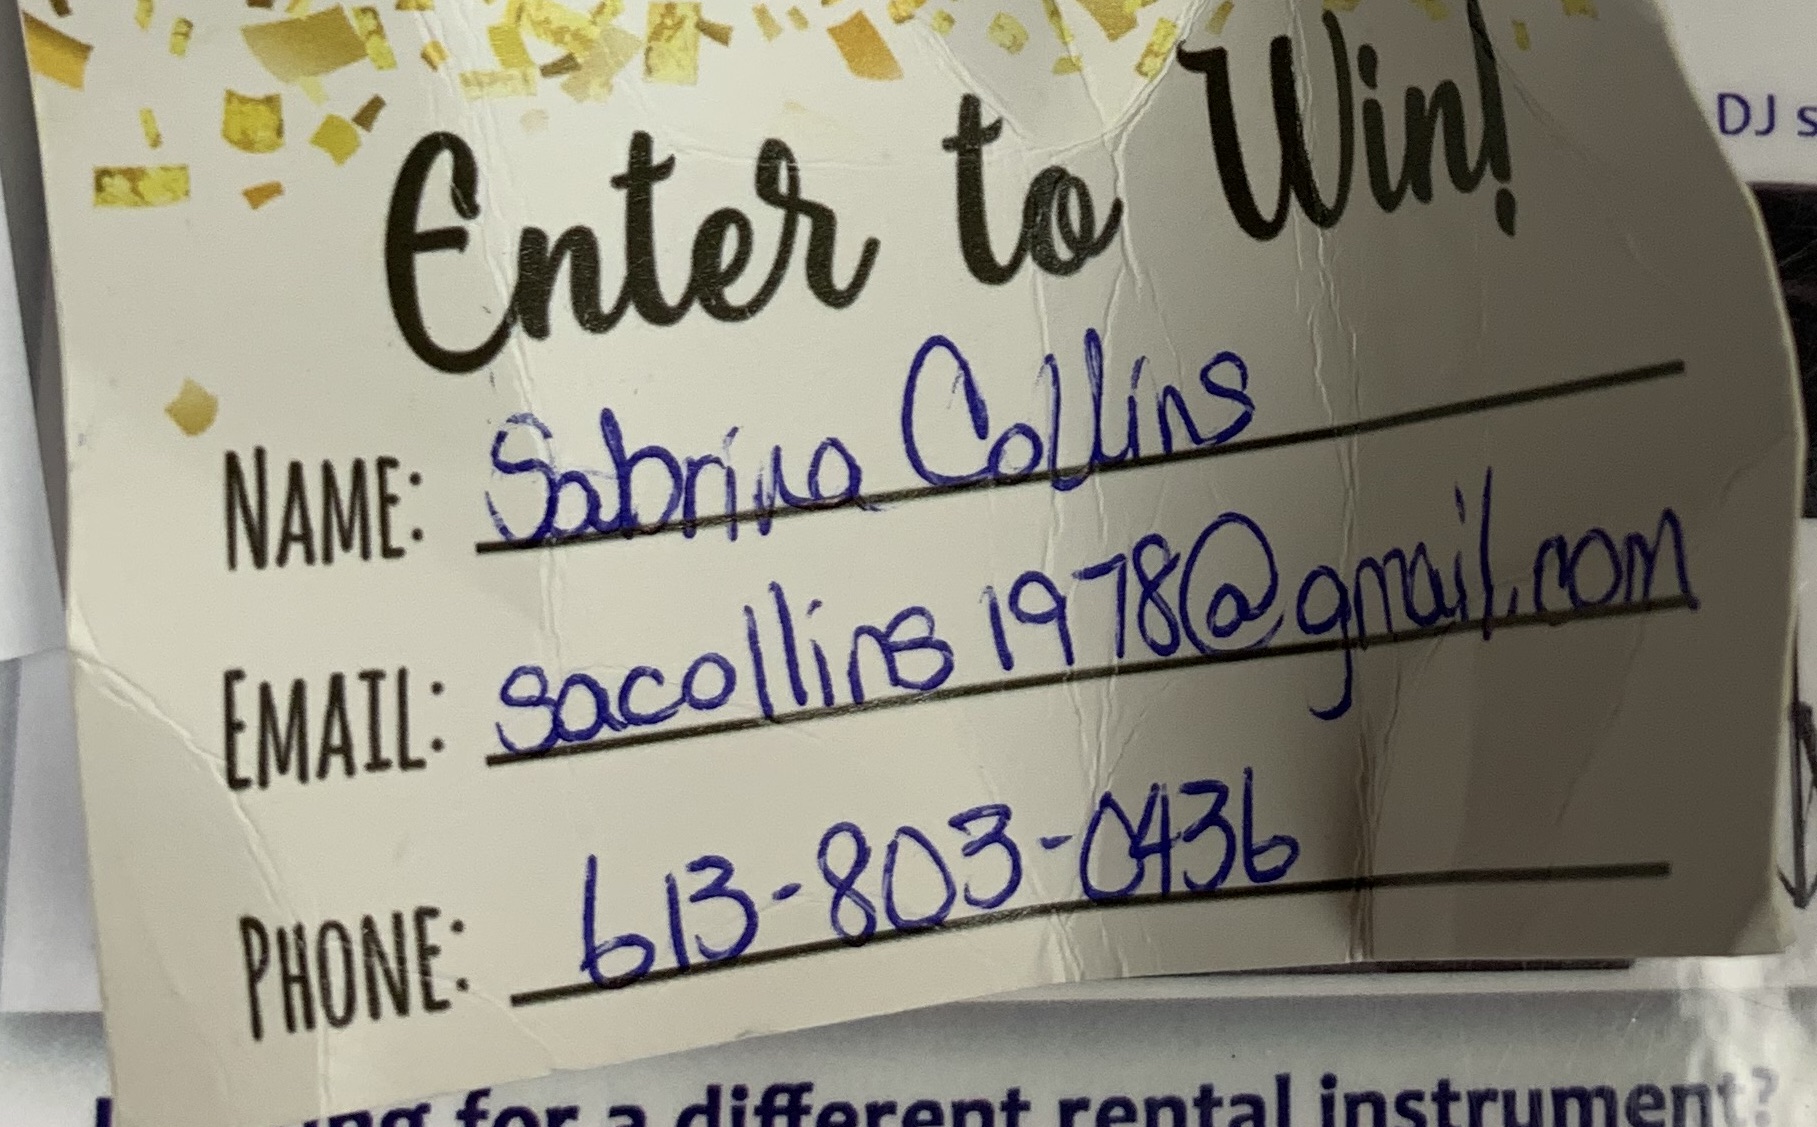 Enter to Win!
DJ s
NAME: Sabrina Collins
EMAIL: sacollins1978@gmail.com
PHONE: 613-803-0436
for a different rental instrument?